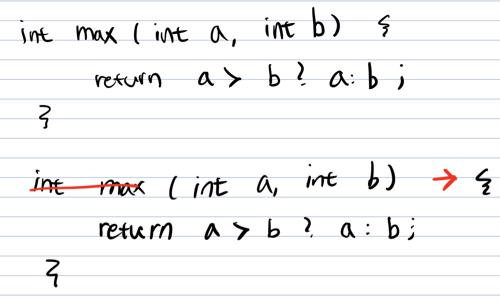 int max ( int a, int b) {
return a > b ? a : b ;
}
int max ( int a, int b) → {
return a > b ? a : b ;
}